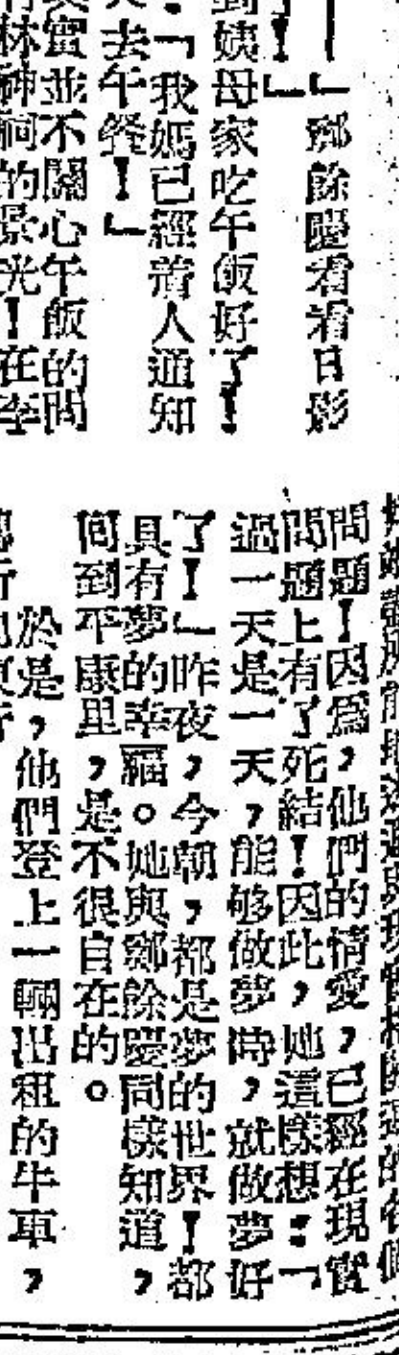 ！」
——」鄭餘慶看看日影
到姨母家吃午飯好了！
：「我媽已經着人通知
去午餐！」
其實並不關心午飯的問
林神祠的景光！在李
問題！因爲，他們的情愛，已經在現實
問題上有了死結！因此，她這樣想：「
過一天是一天，能够做夢時，就做夢好
了！」昨夜，今朝，都是夢的世界！都
具有夢的幸福。她與鄭餘慶同樣知道，
回到平康里，是不很自在的。
於是，他們登上一輛出租的牛車，